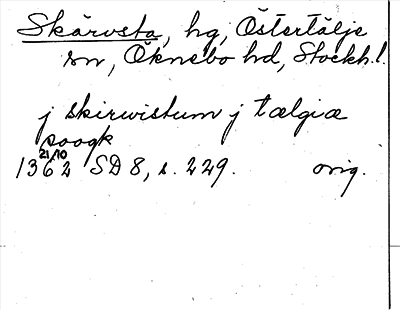 Skärvsta, hg, Östertälje
sn, Öknebo hd, Stockh.l.
j skirwistum j tælgiæ
soogk
21/10
1362 SD 8, s. 229. orig.